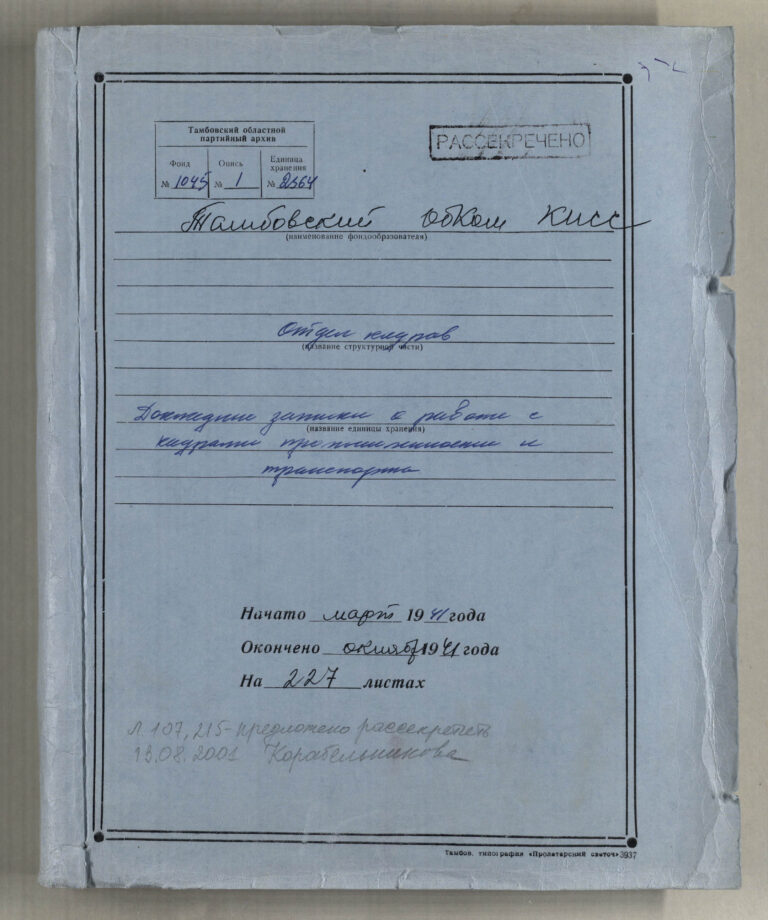 Тамбовский областной
партийный архив
Фонд
Опись
Единица
хранения
№ 1045
№ 1
№ 2364
РАССЕКРЕЧЕНО
Тамбовский обком КПСС
(наименование фондообразователя)
Отдел кадров
(название структурной части)
Докладные записки о работе с
(название единицы хранения)
кадрами промышленности и
транспорта
Начато март 1941 года
Окончено октябрь 1941 года
На 227 листах
Л. 107, 215 - предложено рассекретить
13.08.2001 Корабельникова
Тамбов, типография «Пролетарский светоч» 3937